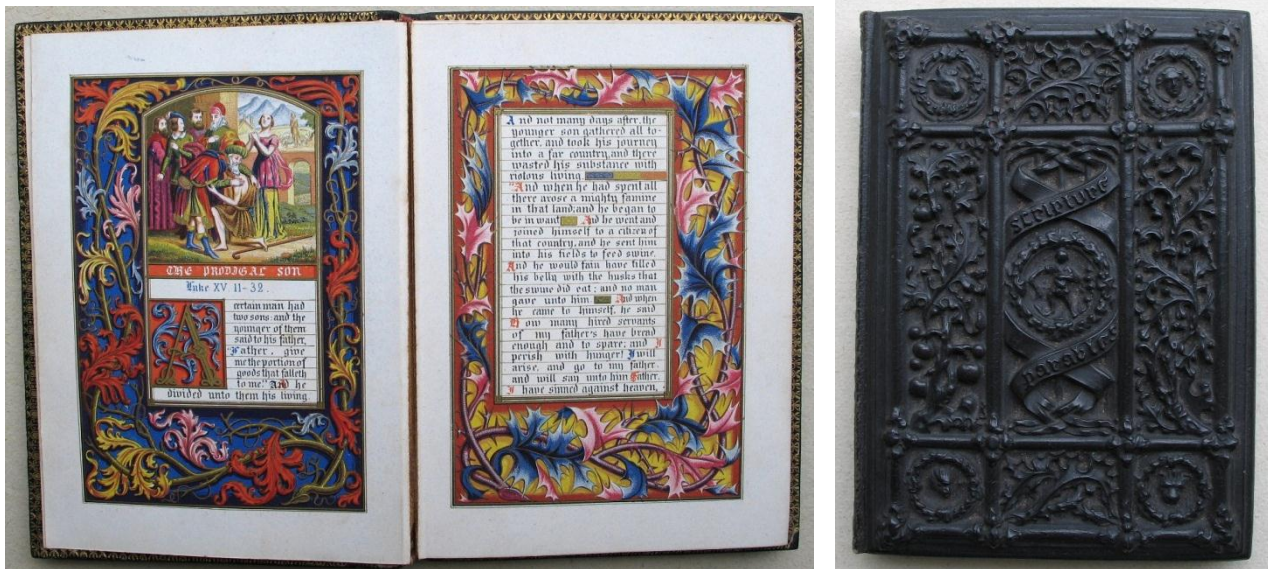 THE PRODIGAL SON
Luke XV 11-32.
A certain man had
two sons: and the
younger of them
said to his father,
"Father, give
me the portion of
goods that falleth
to me." And he
divided unto them his living.
And not many days after, the
younger son gathered all to-
gether, and took his journey
into a far country, and there
wasted his substance with
riotous living.
"And when he had spent all
there arose a mighty famine
in that land, and he began to
be in want. And he went and
joined himself to a citizen of
that country, and he sent him
into his fields to feed swine.
And he would fain have filled
his belly with the husks that
the swine did eat; and no man
gave unto him. And when
he came to himself, he said
How many hired servants
of my father's have bread
enough and to spare; and I
perish with hunger! I will
arise, and go to my father
and will say unto him Father,
I have sinned against heaven,
scripture
parables